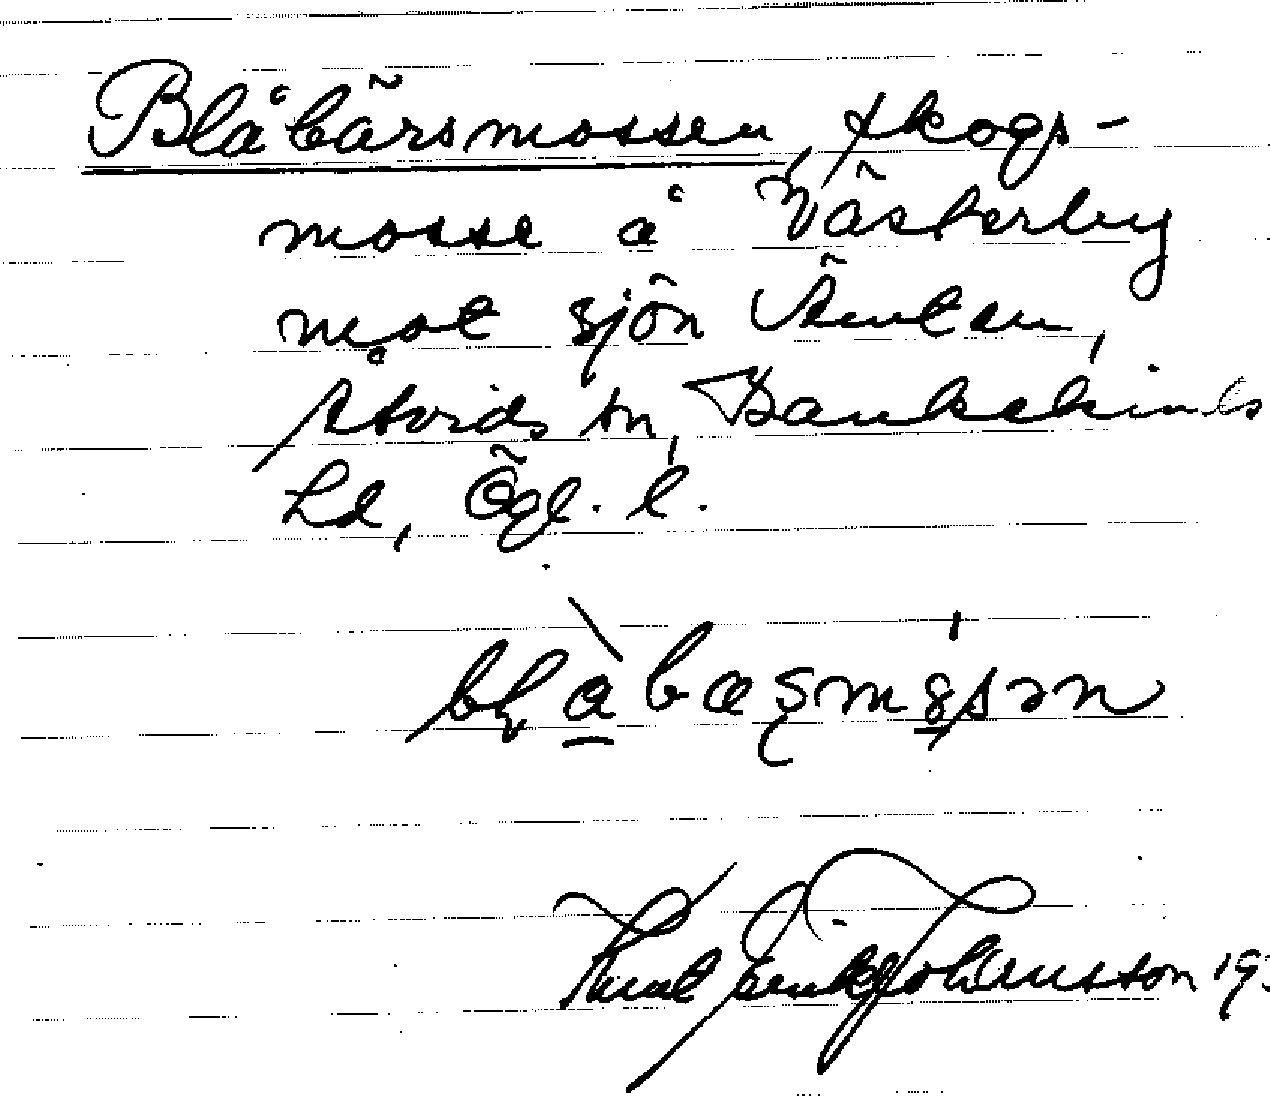 Blåbärsmossen, skogs-
mosse å Västerby
mot sjön Ämten,
Åtvids sn, Bankekinds
hd, Ögl. l.
Knut Erik Johansson 19